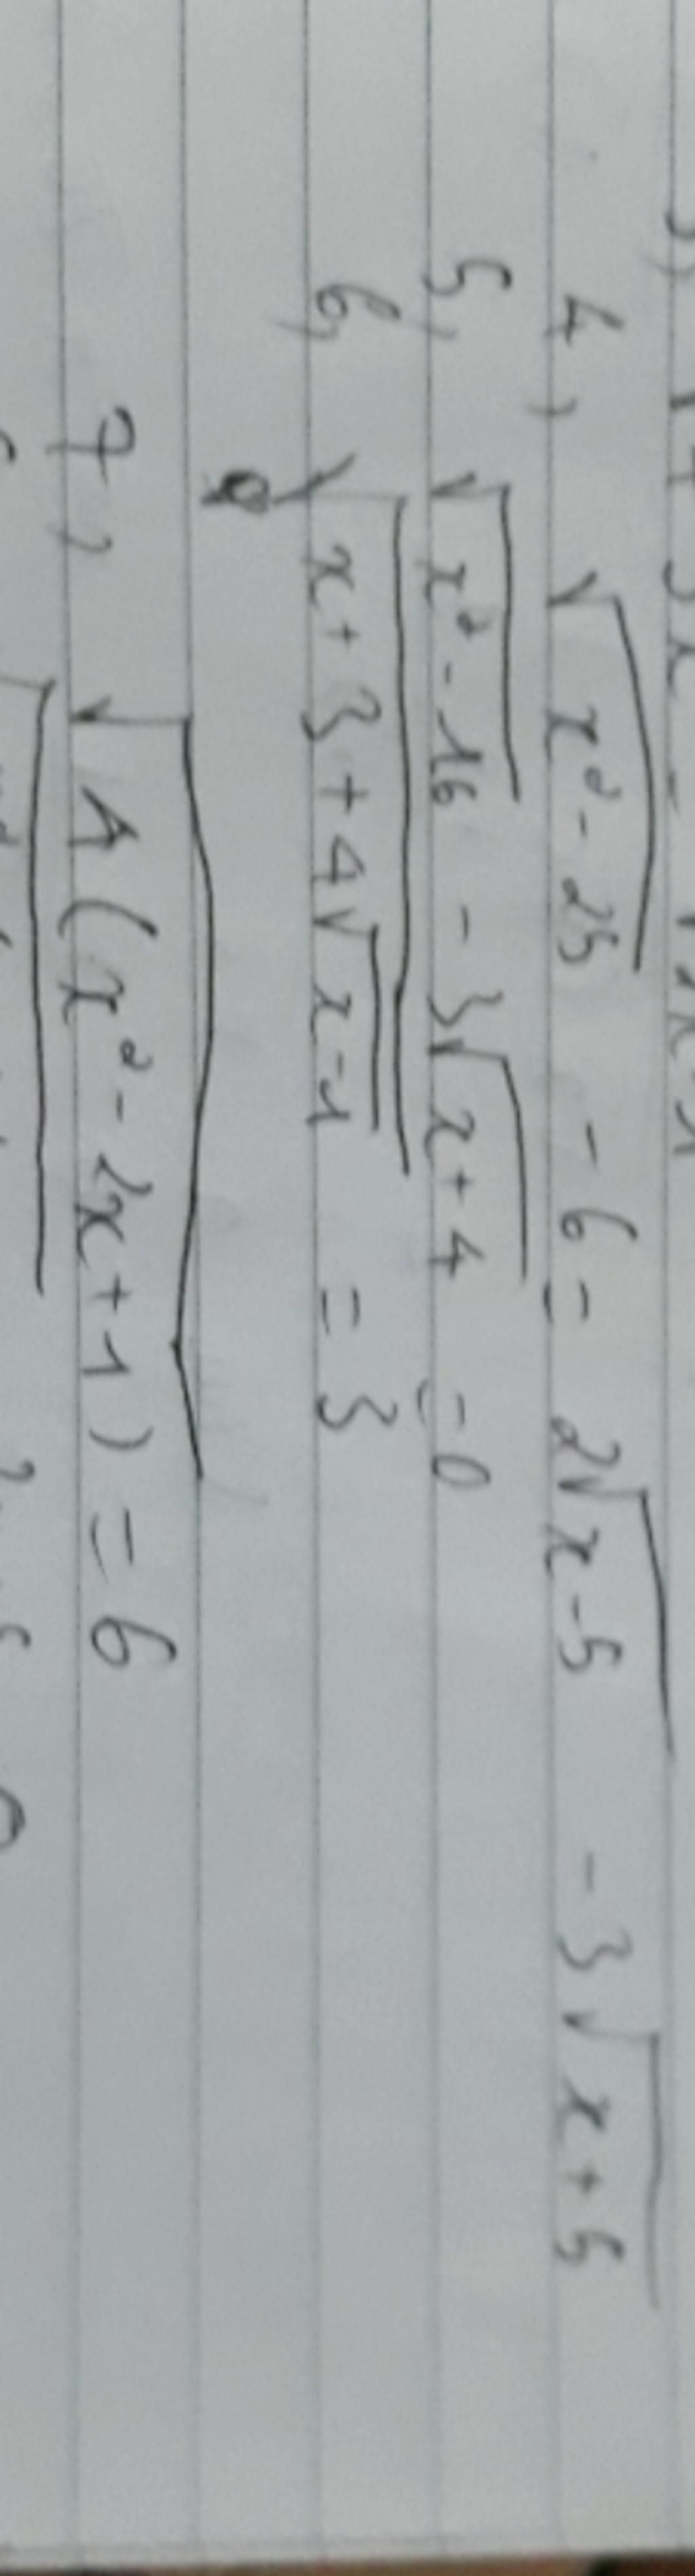 4, √(x² - 25) - 6 = 2√(x - 5) - 3√(x + 5)
5, √(x² - 16) - 3√(x + 4) = 0
6, √(x + 3 + 4√(x - 1)) = 3
7, √(4(x² - 2x + 1)) = 6